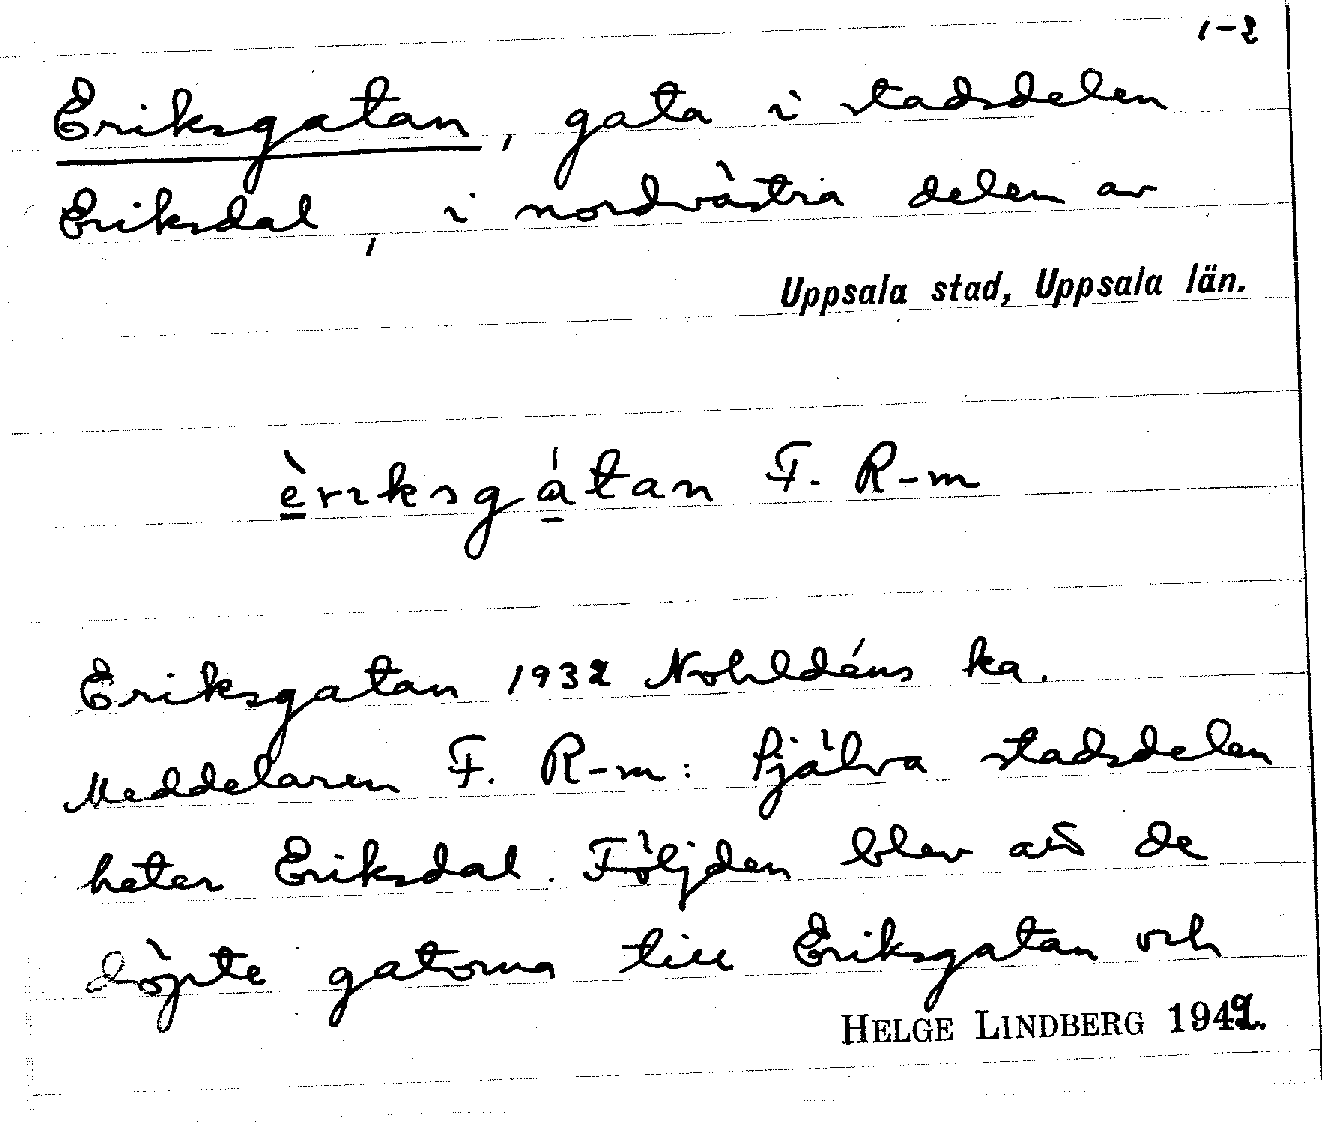 1-2
Eriksgatan, gata i stadsdelen
Eriksdal, i nordvästra delen av
Uppsala stad, Uppsala län.
èriksgátan F. R-m
Eriksgatan 1932 Nohldéns ka.
Meddelaren F. R-m: Själva stadsdelen
heter Eriksdal. Följden blev att de
döpte gatorna till Eriksgatan och
HELGE LINDBERG 1949.